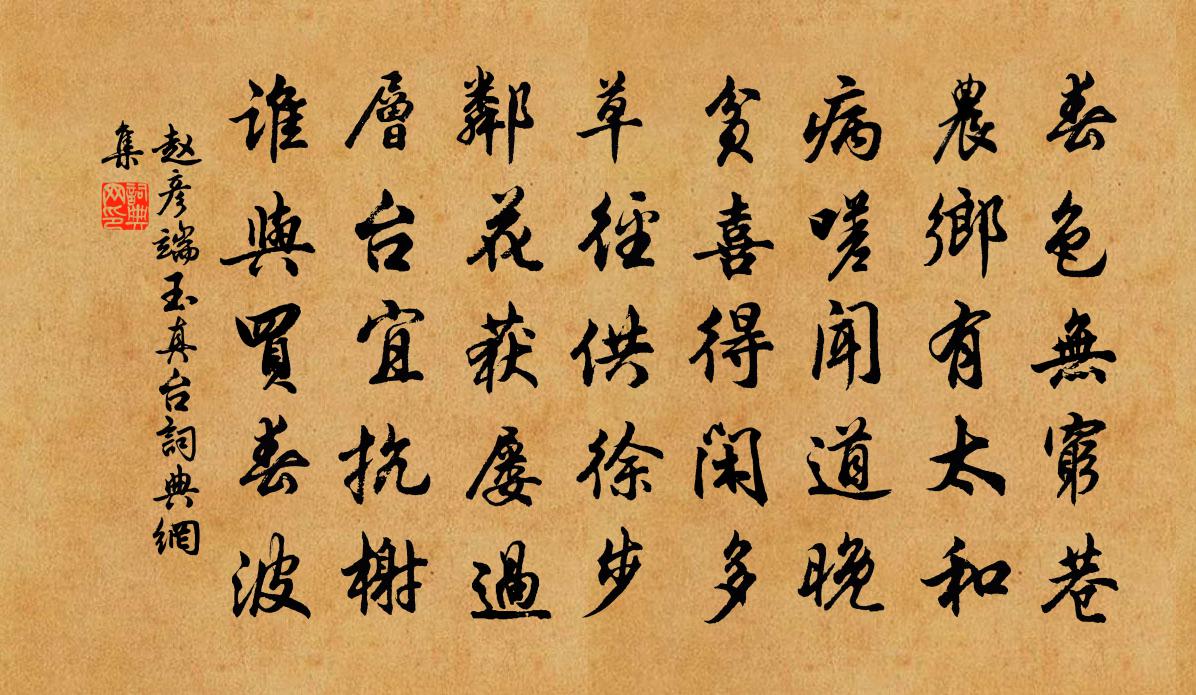 春色無窮巷
農鄉有太和
病嗟聞道晚
貧喜得閑多
草徑供徐步
鄰花获屡過
層台宜抗榭
誰與買春波
赵彦端玉真台詞典網
集
詞典
网印